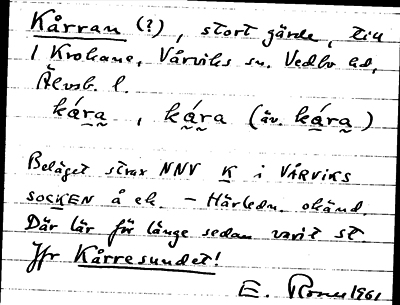 Kårran (?), stort gärde, till
1 Krokane, Vårviks sn. Vedbo hd,
Älvsb. l.
kára̰, ká̰ra̰ (äv. kára̰)
Beläget strax NNV K i VÅRVIKS
SOCKEN å ek. - Härledn. okänd.
Där lär för länge sedan varit st
Jfr Kårresundet!
E. 1961